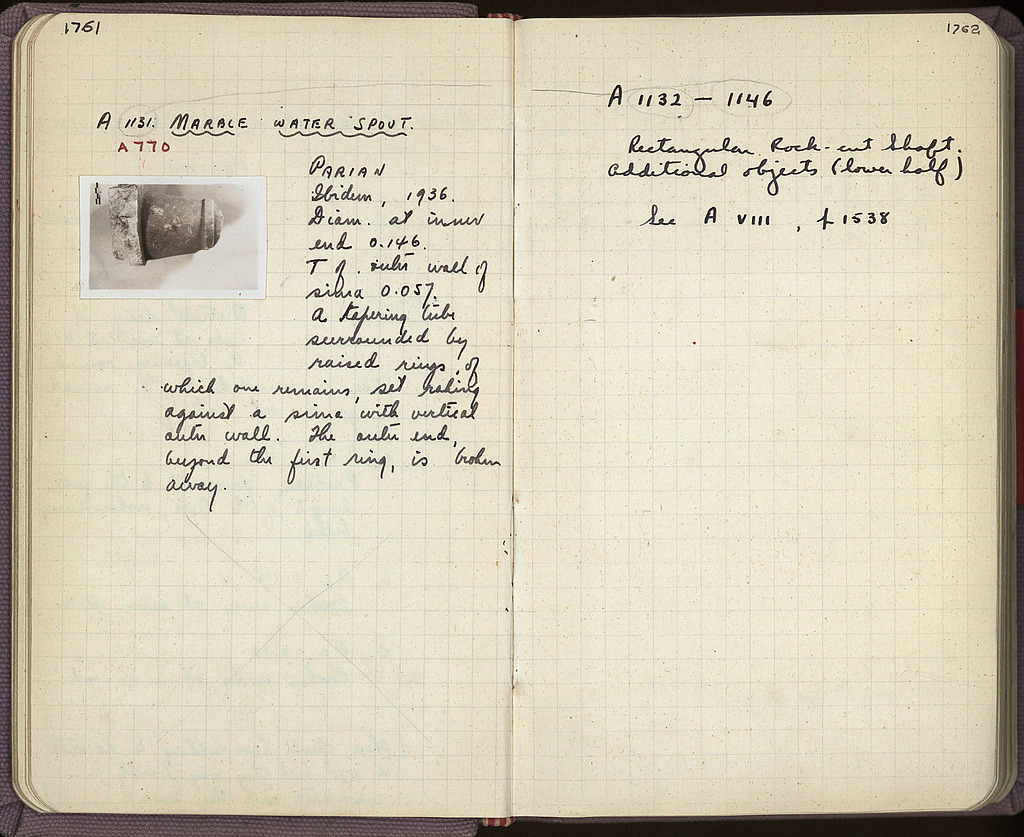 1761
A 1131. MARBLE WATER SPOUT.
A 770
PARIAN
Ibidem, 1936.
Diam. at inner
end 0.146.
T of outer wall of
sima 0.057.
A tapering tube
surrounded by
raised rings, of
which one remains, set raking
against a sima with vertical
outer wall. The outer end,
beyond the first ring, is broken
away.
1762
A 1132 – 1146
Rectangular Rock-cut Shaft.
Additional objects (lower half)
See A VIII, p 1538